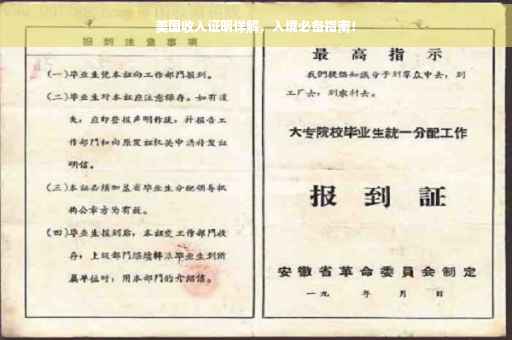 美国收入证明详解，入境必备指南！
报到注意事项
（一）毕业生凭本证向工作部门报到。
（二）毕业生对本证应注意保存。如有遗
失，应即登报声明作废，并报告工
作部门和向原发证机关申请补发证
明信。
（三）本证必须加盖省毕业生分配领导机
构公章方为有效。
（四）毕业生报到后，本证交工作部门收
存；上级部门继续转派毕业生到所
属单位时，用本部门的介绍信。
最高指示
我们提倡知识分子到群众中去，到
工厂去，到农村去。
大专院校毕业生统一分配工作
报到证
安徽省革命委员会制定
一九 年 月 日